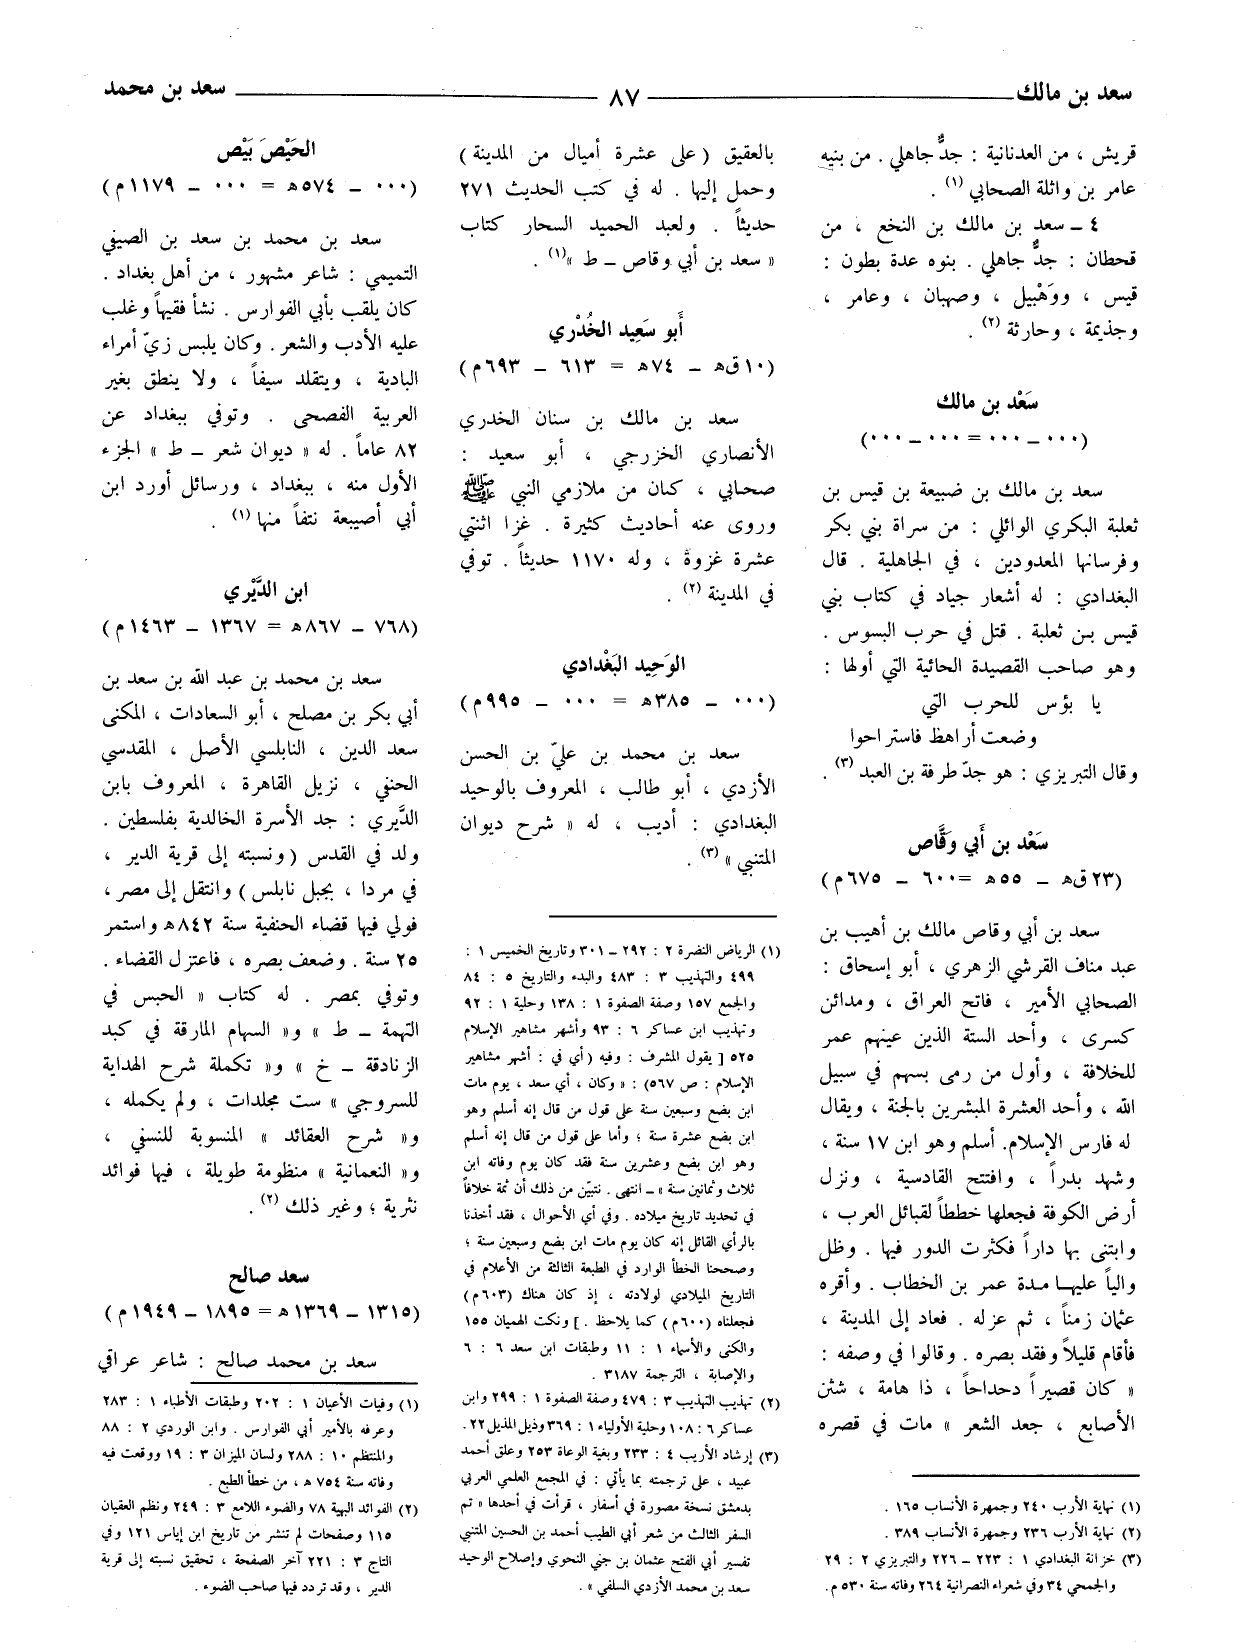 سعد بن مالك
٨٧
سعد بن محمد
قريش ، من العدنانية : جدٌّ جاهلي . من بنيه
عامر بن واثلة الصحابي (١) .
٤ ــ سعد بن مالك بن النخع ، من
قحطان : جدٌّ جاهلي . بنوه عدة بطون :
قيس ، ووَهْبيل ، وصهبان ، وعامر ،
وجذيمة ، وحارثة (٢) .
سَعْد بن مالك
(٠٠٠ ــ ٠٠٠ = ٠٠٠ ــ ٠٠٠)
سعد بن مالك بن ضبيعة بن قيس بن
ثعلبة البكري الوائلي : من سراة بني بكر
وفرسانها المعدودين ، في الجاهلية . قال
البغدادي : له أشعار جياد في كتاب بني
قيس بن ثعلبة . قتل في حرب البسوس .
وهو صاحب القصيدة الحائية التي أولها :
يا بؤس للحرب التي
وضعت أراهظ فاستراحوا
وقال التبريزي : هو جدّ طرفة بن العبد (٣) .
سَعْد بن أَبي وَقَّاص
(٢٣ ق هـ ــ ٥٥ هـ = ٦٠٠ ــ ٦٧٥ م)
سعد بن أبي وقاص مالك بن أهيب بن
عبد مناف القرشي الزهري ، أبو إسحاق :
الصحابي الأمير ، فاتح العراق ، ومدائن
كسرى ، وأحد الستة الذين عينهم عمر
للخلافة ، وأول من رمى بسهم في سبيل
الله ، وأحد العشرة المبشرين بالجنة ، ويقال
له فارس الإسلام. أسلم وهو ابن ١٧ سنة ،
وشهد بدراً ، وافتتح القادسية ، ونزل
أرض الكوفة فجعلها خططاً لقبائل العرب ،
وابتنى بها داراً فكثرت الدور فيها . وظل
والياً عليها مدة عمر بن الخطاب . وأقره
عثمان زمناً ، ثم عزله . فعاد إلى المدينة ،
فأقام قليلاً وفقد بصره . وقالوا في وصفه :
« كان قصيراً دحداحاً ، ذا هامة ، شثن
الأصابع ، جعد الشعر » مات في قصره
(١) نهاية الأرب ٢٤٠ وجمهرة الأنساب ١٦٥ .
(٢) نهاية الأرب ٢٣٦ وجمهرة الأنساب ٣٨٩ .
(٣) خزانة البغدادي ١ : ٢٢٣ ــ ٢٢٦ والتبريزي ٢ : ٢٩
والجمحي ٣٤ وفي شعراء النصرانية ٢٦٤ وفاته سنة ٥٣٠ م.
بالعقيق (على عشرة أميال من المدينة)
وحمل إليها . له في كتب الحديث ٢٧١
حديثاً . ولعبد الحميد السحار كتاب
« سعد بن أبي وقاص ــ ط »(١) .
أَبو سَعِيد الخُدْري
(١٠ ق هـ ــ ٧٤ هـ = ٦١٣ ــ ٦٩٣ م)
سعد بن مالك بن سنان الخدري
الأنصاري الخزرجي ، أبو سعيد :
صحابي ، كان من ملازمي النبي ﷺ
وروى عنه أحاديث كثيرة . غزا اثنتي
عشرة غزوة ، وله ١١٧٠ حديثاً . توفي
في المدينة (٢) .
الوَحِيد البَغْدادي
(٠٠٠ ــ ٣٨٥ هـ = ٠٠٠ ــ ٩٩٥ م)
سعد بن محمد بن عليّ بن الحسن
الأزدي ، أبو طالب ، المعروف بالوحيد
البغدادي : أديب ، له « شرح ديوان
المتنبي » (٣) .
(١) الرياض النضرة ٢ : ٢٩٢ ــ ٣٠١ وتاريخ الخميس ١ :
٤٩٩ والتهذيب ٣ : ٤٨٣ والبدء والتاريخ ٥ : ٨٤
والجمع ١٥٧ وصفة الصفوة ١ : ١٣٨ وحلية ١ : ٩٢
وتهذيب ابن عساكر ٦ : ٩٣ وأشهر مشاهير الإسلام
٥٢٥ [ يقول المشرف : وفيه (أي في : أشهر مشاهير
الإسلام : ص ٥٦٧) : « وكان ، أي سعد ، يوم مات
ابن بضع وسبعين سنة على قول من قال إنه أسلم وهو
ابن بضع عشرة سنة ؛ وأما على قول من قال إنه أسلم
وهو ابن بضع وعشرين سنة فقد كان يوم وفاته ابن
ثلاث وثمانين سنة » ــ انتهى . نتبيّن من ذلك أن ثمة خلافاً
في تحديد تاريخ ميلاده . وفي أي الأحوال ، فقد أخذنا
بالرأي القائل إنه كان يوم مات ابن بضع وسبعين سنة ؛
وصححنا الخطأ الوارد في الطبعة الثالثة من الأعلام في
التاريخ الميلادي لولادته ، إذ كان هناك (٦٠٣ م)
فجعلناه (٦٠٠ م) كما يلاحظ . ] ونكت الهميان ١٥٥
والكنى والأسماء ١ : ١١ وطبقات ابن سعد ٦ : ٦
والإصابة ، الترجمة ٣١٨٧ .
(٢) تهذيب التهذيب ٣ : ٤٧٩ وصفة الصفوة ١ : ٢٩٩ وابن
عساكر ٦ : ١٠٨ وحلية الأولياء ١ : ٣٦٩ وذيل المذيل ٢٢ .
(٣) إرشاد الأريب ٤ : ٢٣٣ وبغية الوعاة ٢٥٣ وعلق أحمد
عبيد ، على ترجمته بما يأتي : في المجمع العلمي العربي
بدمشق نسخة مصورة في أسفار ، قرأت في أحدها « تم
السفر الثالث من شعر أبي الطيب أحمد بن الحسين المتنبي
تفسير أبي الفتح عثمان بن جني النحوي وإصلاح الوحيد
سعد بن محمد الأزدي السلفي » .
الحَيْصَ بَيْص
(٠٠٠ ــ ٥٧٤ هـ = ٠٠٠ ــ ١١٧٩ م)
سعد بن محمد بن سعد بن الصيفي
التميمي : شاعر مشهور ، من أهل بغداد .
كان يلقب بأبي الفوارس . نشأ فقيهاً وغلب
عليه الأدب والشعر . وكان يلبس زيّ أمراء
البادية ، ويتقلد سيفاً ، ولا ينطق بغير
العربية الفصحى . وتوفي ببغداد عن
٨٢ عاماً . له « ديوان شعر ــ ط » الجزء
الأول منه ، ببغداد ، ورسائل أورد ابن
أبي أصيبعة نتفاً منها (١) .
ابن الدَّيْري
(٧٦٨ ــ ٨٦٧ هـ = ١٣٦٧ ــ ١٤٦٣ م)
سعد بن محمد بن عبد الله بن سعد بن
أبي بكر بن مصلح ، أبو السعادات ، المكنى
سعد الدين ، النابلسي الأصل ، المقدسي
الحنفي ، نزيل القاهرة ، المعروف بابن
الدَّيري : جد الأسرة الخالدية بفلسطين .
ولد في القدس (ونسبته إلى قرية الدير ،
في مردا ، بجبل نابلس) وانتقل إلى مصر ،
فولي فيها قضاء الحنفية سنة ٨٤٢ هـ واستمر
٢٥ سنة . وضعف بصره ، فاعتزل القضاء .
وتوفي بمصر . له كتاب « الحبس في
التهمة ــ ط » و« السهام المارقة في كبد
الزنادقة ــ خ » و« تكملة شرح الهداية
للسروجي » ست مجلدات ، ولم يكمله ،
و« شرح العقائد » المنسوبة للنسفي ،
و« النعمانية » منظومة طويلة ، فيها فوائد
نثرية ؛ وغير ذلك (٢) .
سعد صالح
(١٣١٥ ــ ١٣٦٩ هـ = ١٨٩٥ ــ ١٩٤٩ م)
سعد بن محمد صالح : شاعر عراقي
(١) وفيات الأعيان ١ : ٢٠٢ وطبقات الأطباء ١ : ٢٨٣
وعرفه بالأمير أبي الفوارس . وابن الوردي ٢ : ٨٨
والمنتظم ١٠ : ٢٨٨ ولسان الميزان ٣ : ١٩ ووقعت فيه
وفاته سنة ٧٥٤ هـ ، من خطأ الطبع .
(٢) الفوائد البهية ٧٨ والضوء اللامع ٣ : ٢٤٩ ونظم العقيان
١١٥ وصفحات لم تنشر من تاريخ ابن إياس ١٢١ وفي
التاج ٣ : ٢٢١ آخر الصفحة ، تحقيق نسبته إلى قرية
الدير ، وقد تردد فيها صاحب الضوء .